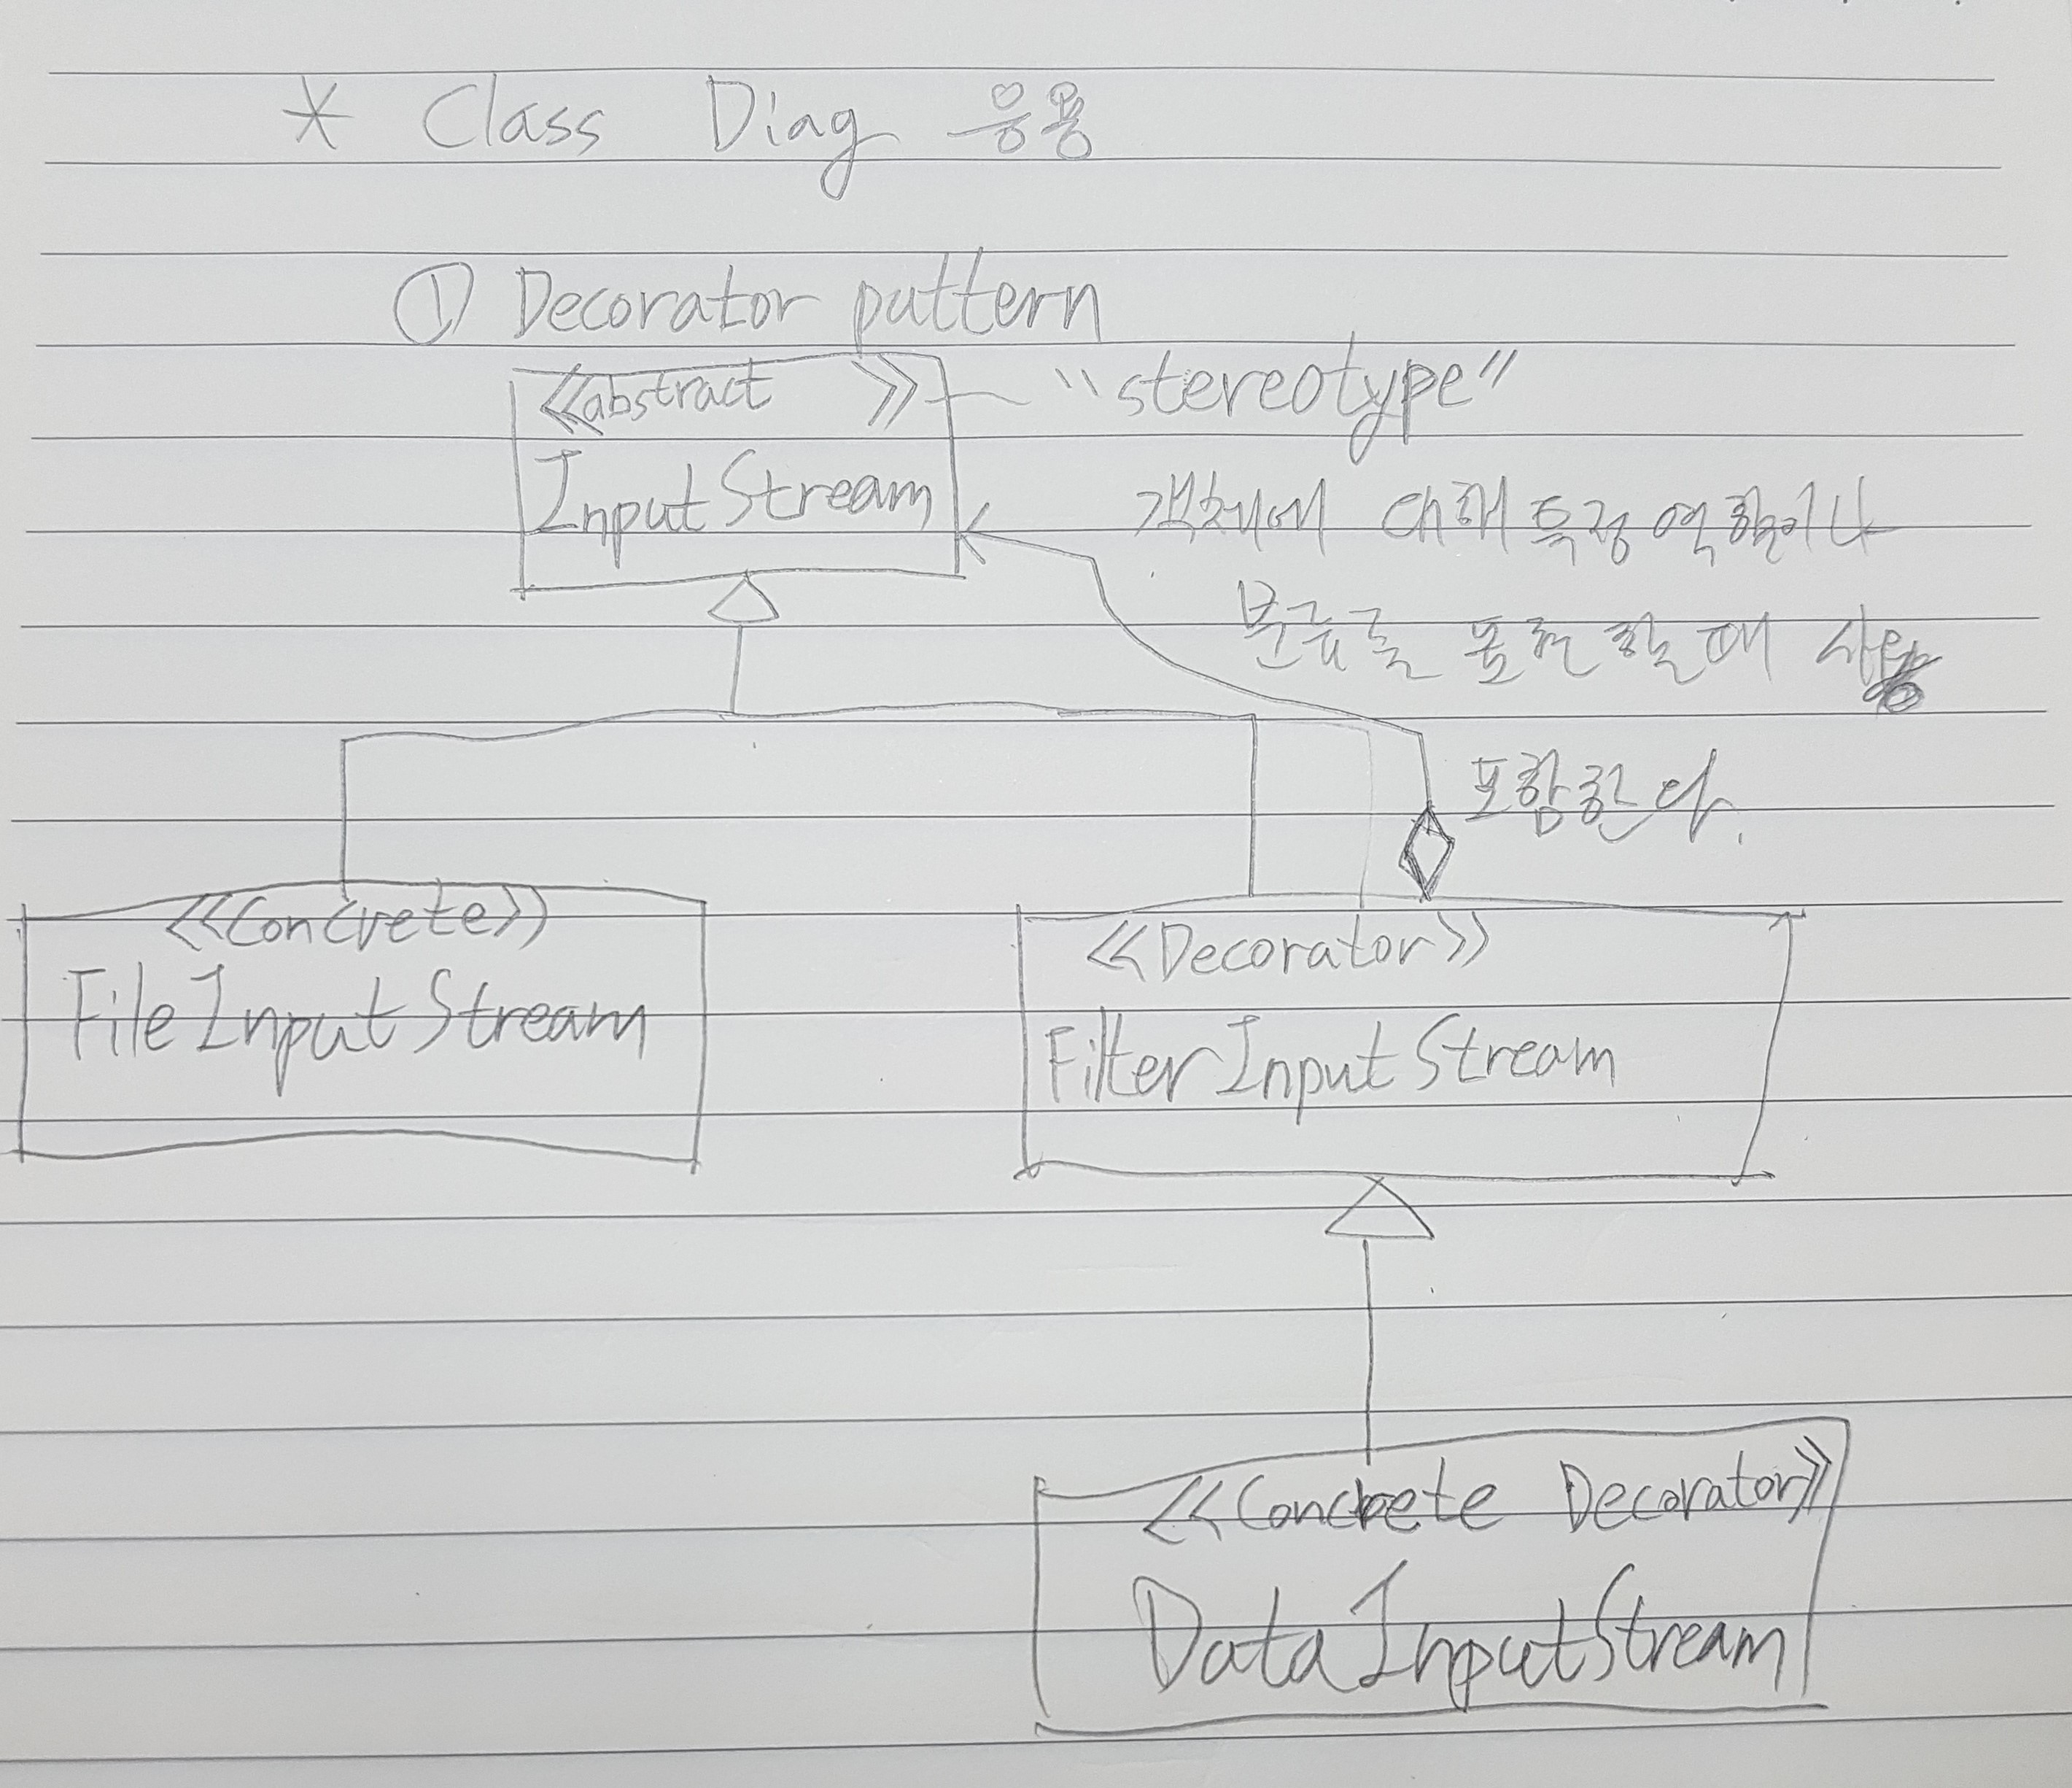 * Class Diag 응용
① Decorator pattern
<<abstract >> "stereotype"
InputStream
객체에 대해 특정 역할이나
분류를 표현할 때 사용
포함한다.
<<Concrete>>
FileInputStream
<<Decorator>>
FilterInputStream
<<Concrete Decorator>>
DataInputStream